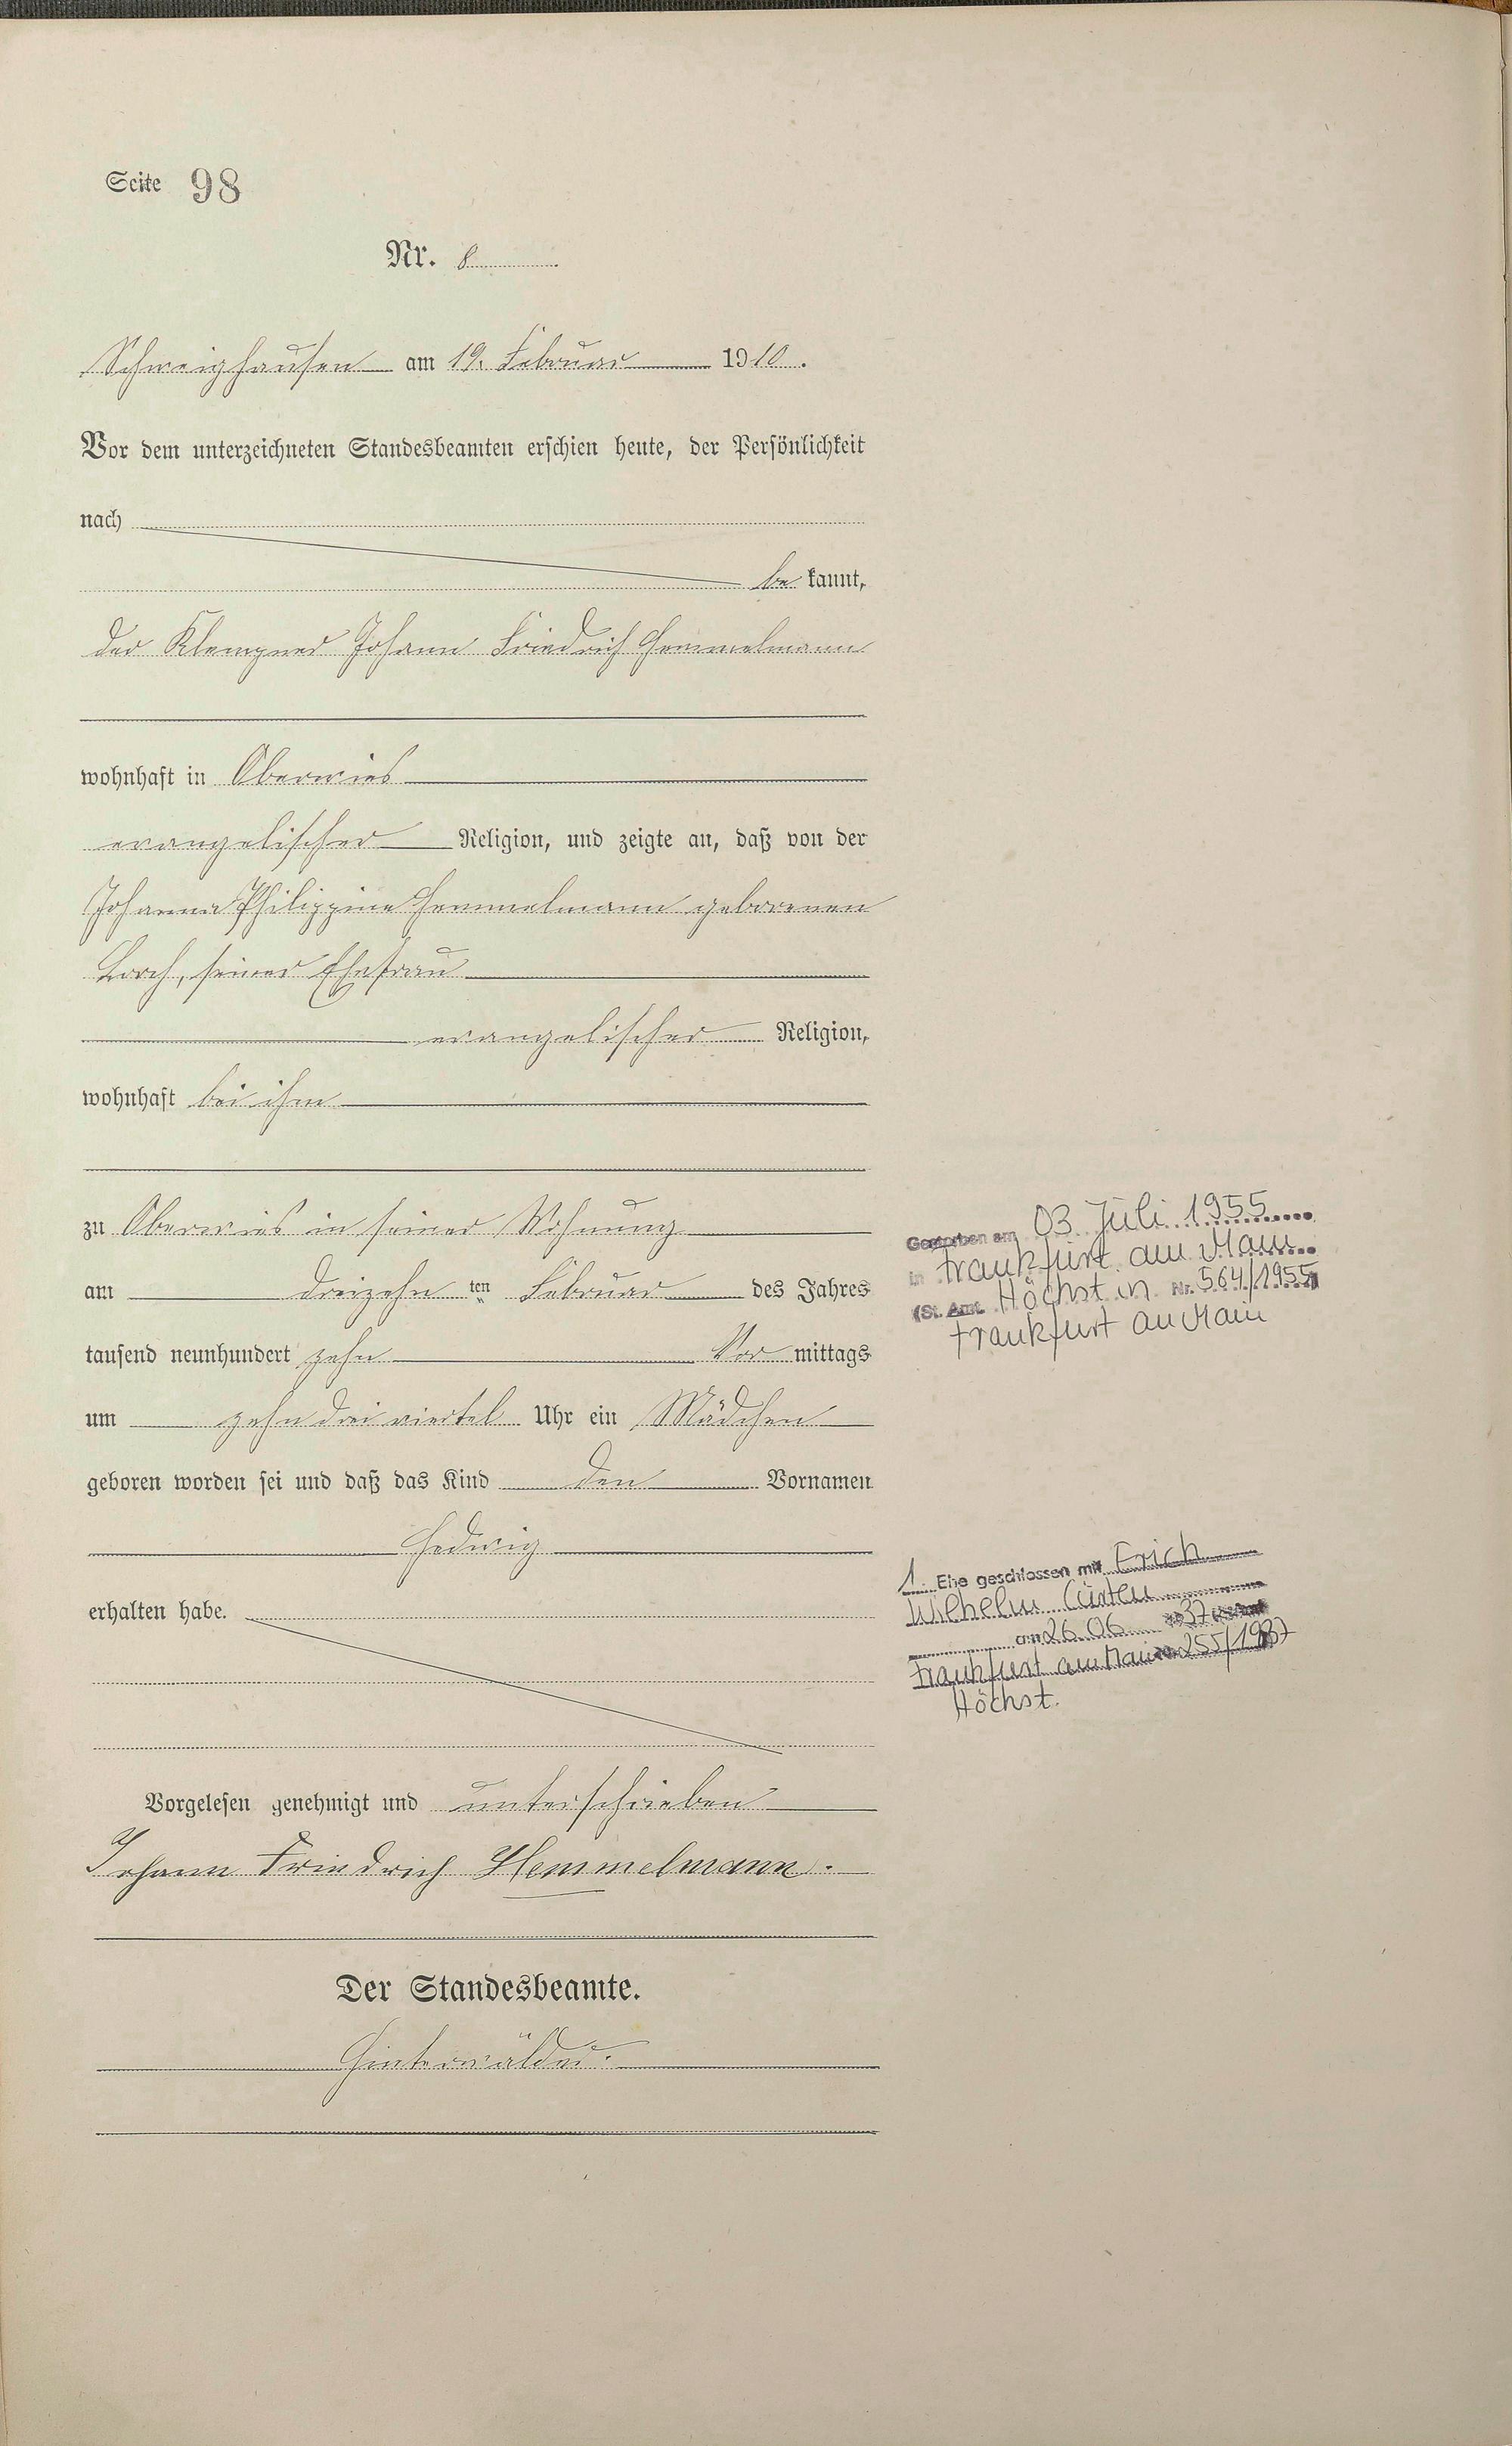 Seite 98
Nr. 8
Schweighausen am 19. Februar 1910.
Vor dem unterzeichneten Standesbeamten erschien heute, der Persönlichkeit
nach
be kannt,
der Klempner Johann Friedrich Hemmelmann
wohnhaft in Oberwies
evangelischer Religion, und zeigte an, daß von der
Johanna Philippine Hemmelmann geborenen
Lorch, seiner Ehefrau
evangelischer Religion,
wohnhaft bei ihm
zu Oberwies in seiner Wohnung
am dreizehn ten Februar des Jahres
tausend neunhundert zehn Vor mittags
um zehn drei viertel Uhr ein Mädchen
geboren worden sei und daß das Kind den Vornamen
Hedwig
erhalten habe.
Vorgelesen genehmigt und unterschrieben
Johann Friedrich Hemmelmann.
Der Standesbeamte.
Hinterwälder.
Gestorben am 03. Juli 1955
in Frankfurt am Main
(St. Amt Höchst in Nr. 564/1955)
Frankfurt am Main
1. Ehe geschlossen mit Erich
Wilhelm
am 26.06 37
Frankfurt am Main 255/1937
Höchst.